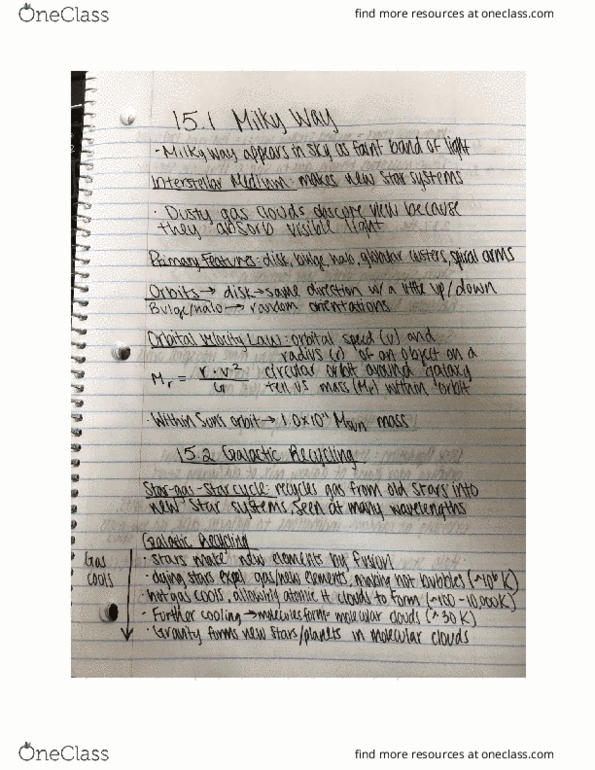 OneClass
find more resources at oneclass.com
15.1 Milky Way
· Milky way appears in sky as faint band of light
Interstellar Medium: makes new star systems
· Dusty gas clouds obscure view because
they absorb visible light
Primary Features: disk, bulge, halo, globular clusters, spiral arms
Orbits → disk → same direction w/ a little up/down
Bulge/halo → random orientations
Orbital Velocity Law: orbital speed (v) and
radius (r) of an object on a
Mr = r · v² / G circular orbit around galaxy
tell us mass (Mr) within orbit
· Within Sun's orbit → 1.0 x 10¹¹ Msun mass
15.2 Galactic Recycling
Star-gas-star cycle: recycles gas from old stars into
new star systems, seen at many wavelengths
Galactic Recycling
Gas cools
· stars make new elements by fusion
· dying stars expel gas/new elements, making hot bubbles (~10⁶ K)
· hot gas cools, allowing atomic H clouds to form (~100-10,000K)
· Further cooling → molecules form = molecular clouds (~30 K)
· Gravity forms new stars/planets in molecular clouds
OneClass
find more resources at oneclass.com